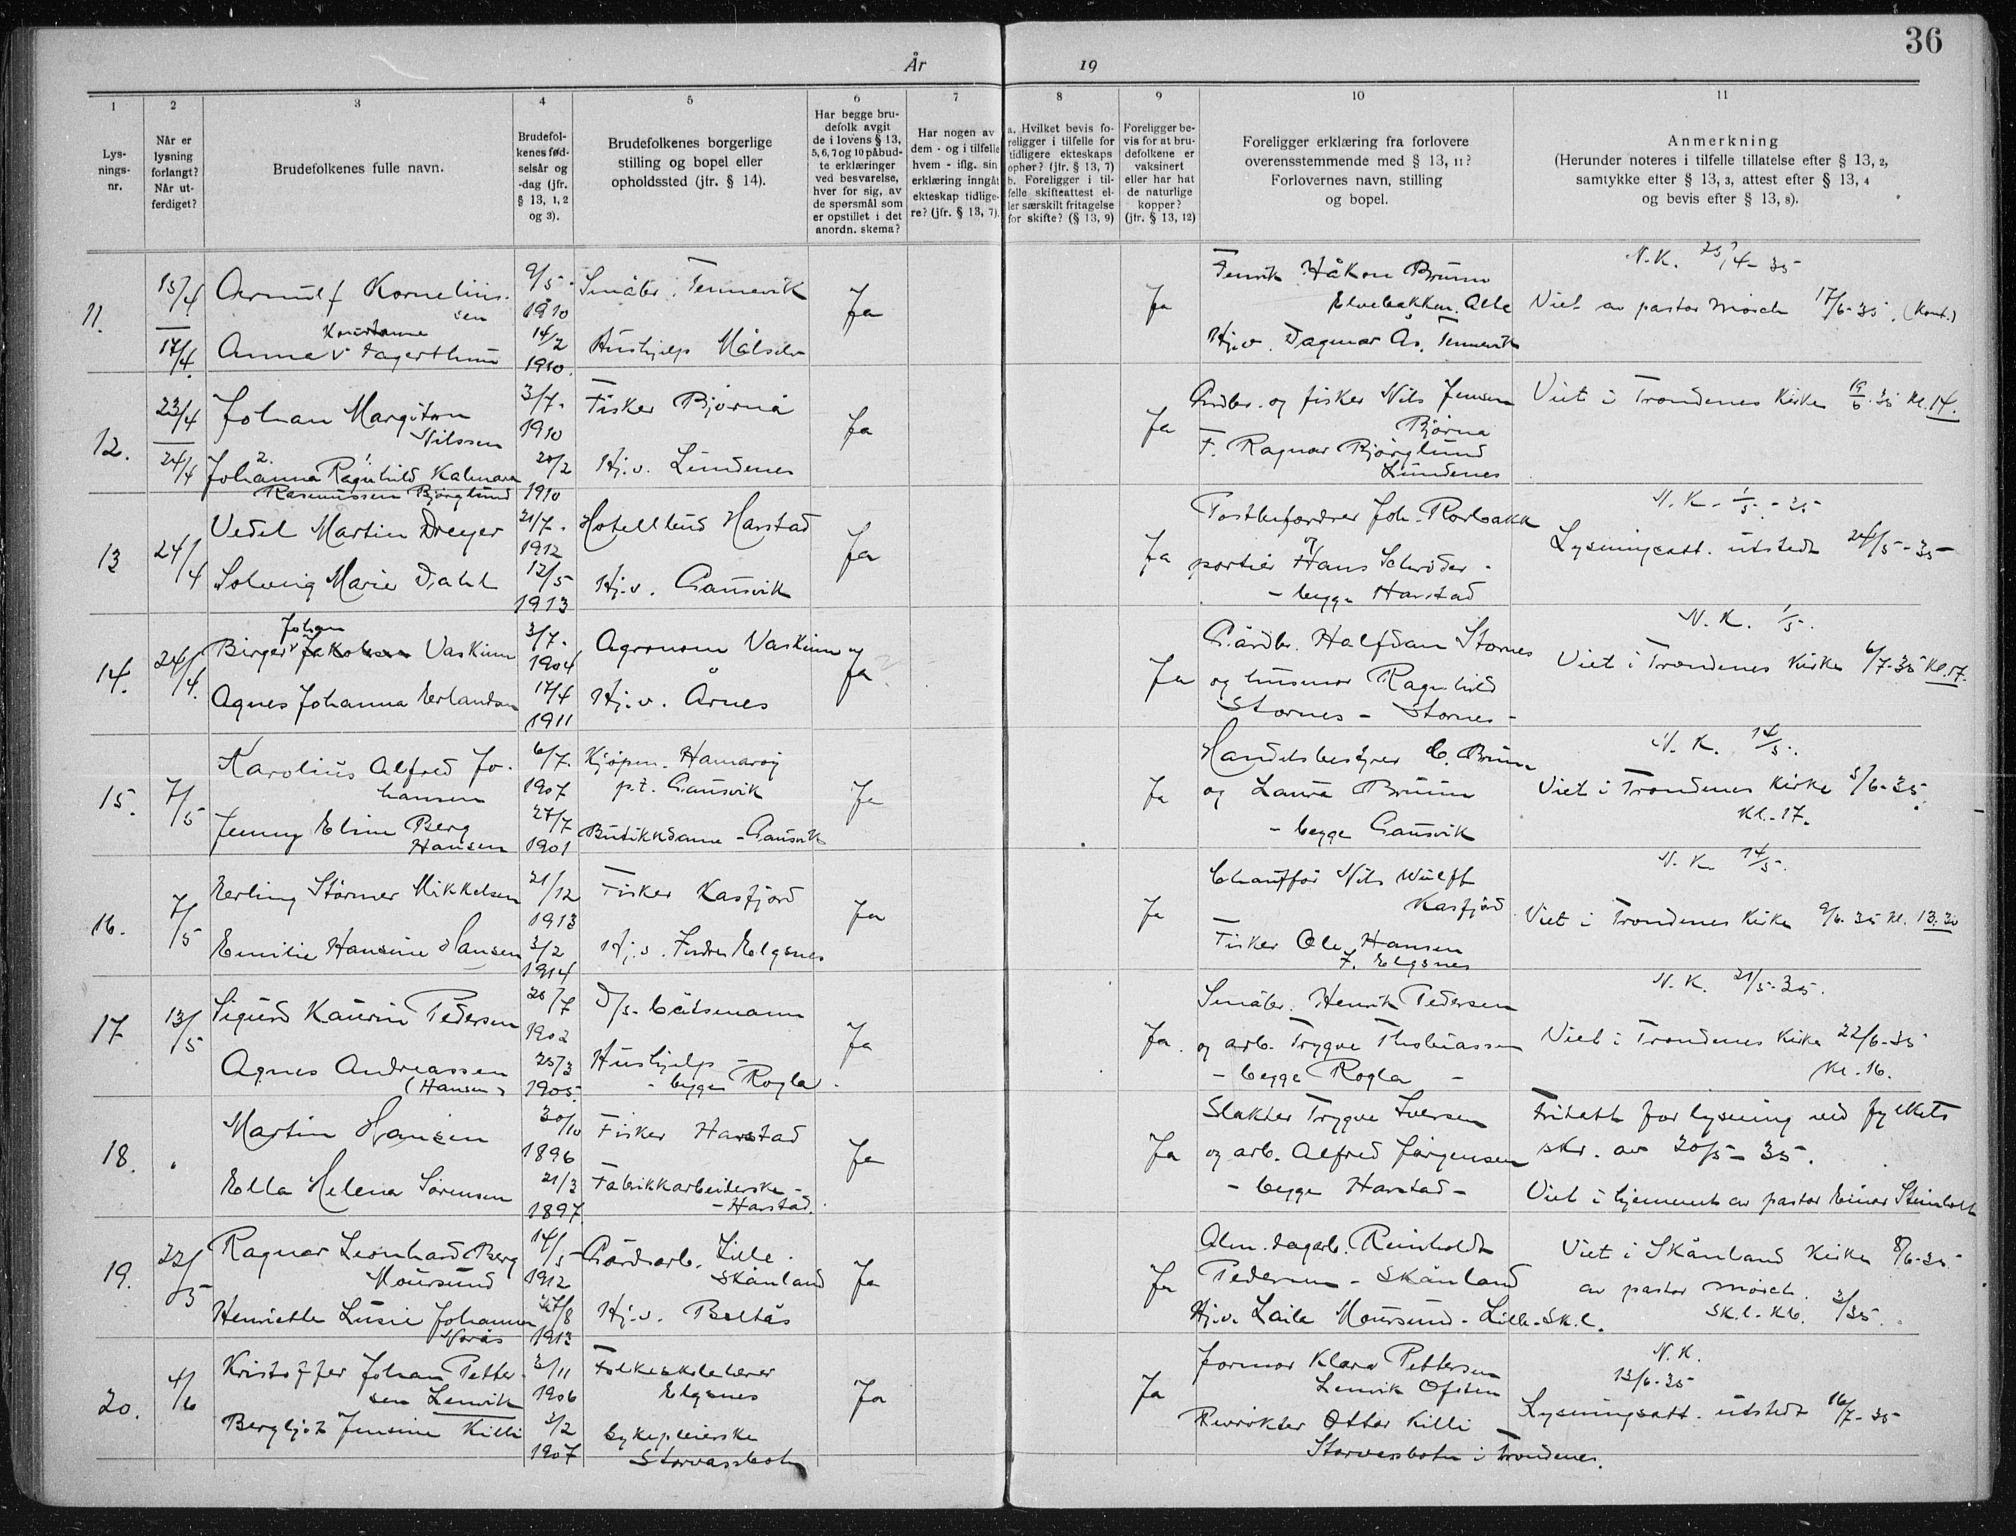 36
År 19
1 2 3 4 5 6 7 8 9 10 11
Lys-
nings-
nr.
Når er
lysning
forlangt?
Når ut-
ferdiget?
Brudefolkenes fulle navn.
Brudefol-
kenes fød-
selsår og
-dag (jfr.
§ 13, 1, 2
og 3).
Brudefolkenes borgerlige
stilling og bopel eller
opholdssted (jfr. § 14).
Har begge bru-
defolk avgit
de i lovens § 13,
5, 6, 7 og 10 påbud-
te erklæringer
ved besvarelse,
hver for sig, av
de spørsmål som
er opstillet i det
anordn. skema?
Har nogen av
dem - og i tilfelle
hvem - iflg. sin
erklæring inngåt
ekteskap tidlige-
re? (jfr. § 13, 7).
a. Hvilket bevis fo-
religger i tilfelle for
tidligere ekteskaps
ophør? (jfr. § 13, 7)
b. Foreligger i til-
felle skifteattest el-
ler særskilt fritagelse
for skifte? (§ 13, 9)
Foreligger be-
vis for at bru-
defolkene er
vaksinert
eller har hat
de naturlige
kopper?
(jfr. § 13, 12)
Foreligger erklæring fra forlovere
overensstemmende med § 13, 11?
Forlovernes navn, stilling
og bopel.
Anmerkning
(Herunder noteres i tilfelle tillatelse efter § 13, 2,
samtykke efter § 13, 3, attest efter § 13, 4
og bevis efter § 13, 8).
11.
17/4
Kornelius-
sen
Anne Fagerthun
9/5 1910
14/2 1910
Småbr. Tennevik
Hushjelp Målselv
Ja
Ja
Håkon Bruun
Elvebakken. Alta
Hj.v. Dagmar Ås, Tennevik
N.K.
Viet av pastor Mosch 17/6-35.
12.
23/4
24/4
Johan Margiton
Nilssen
Johanna Ragnhild Kalmara
Rasmussen Bjørglund
3/7- 1910
20/2 1910
Fisker Bjørnå
Hj.v. Lundenes
Ja
Ja
Gårdbr. og fisker Nils Jensen
Bjørnå
F. Ragnar Bjørglund
Lundenes
Viet i Trondenes Kirke 19/6-35 Kl. 14.
13
24/4
Vedel Martin Dreyer
Solveig Marie Dahl
21/7- 1912
12/5 1913
Hotellbud Harstad
Hj.v. Gausvik
Ja
Ja
Postbefordrer Joh. Rorbakk
og
portier Hans Schrøder -
- begge Harstad
N.K. - 1/5 - 35
Lysningsatt. utstedt 24/5-35
14.
24/4.
Birger Johan Vaskinn
Agnes Johanna Erlandsen
3/7- 1904
17/4 1911
Agronom Vaskinn
Hj.v. Årnes
Ja
Ja
Gårdbr. Halfdan Stornes
og husmor Ragnhild
Stornes - Stornes -
N.K. 1/5.
Viet i Trondenes Kirke 6/7-35 Kl. 17.
15.
7/5
Karolius Alfred Jo-
hansen
Jenny Eline Berg
Hansen
6/7. 1907
27/7 1901
Kjøpm. Hamarøy
p.t. Gausvik
Butikkdame - Gausvik
Ja
Ja
Handelsbestyrer C. Bruun
og Laura Bruun
- begge Gausvik
N.K. 14/5.
Viet i Trondenes Kirke 5/6-35.
Kl. 17.
16.
7/5
Erling Størmer Mikkelsen
Emilie Hansine Hansen
21/12 1913
3/2 1914
Fisker Kasfjord
Hj.v. Indre Elgsnes
Ja
Ja
Chauffør Nils Wulff
Kasfjord
Fisker Ole Hansen
I. Elgsnes
N.K. 14/5.
Viet i Trondenes Kirke 9/6-35 Kl. 13.30
17
13/5
Sigurd Kaurin Pedersen
Agnes Andreassen
(Hansen)
1902
25/3 1905.
D/s- båtsmann
Hushjelp -
- begge Rogla.
Ja
Ja.
Småbr. Henrik Pedersen
og arb. Trygve Thobiassen
- begge Rogla -
N.K. 21/5-35.
Viet i Trondenes Kirke 22/6-35
Kl. 16.
18.
Martin Hansen
Ella Helena Sørensen
30/10 1896
21/3 1897.
Fisker Harstad
Fabrikkarbeiderske -
- Harstad.
Ja
Ja
Slakter Trygve Iversen
og arb. Alfred Jørgensen
- begge Harstad -
Fritatt for lysning ved fylkets
skr. av 20/5-35.
Viet i hjemmet av pastor Einar Steinholt
19.
22/5
Ragnar Leonhard Berg
Moursund
Henriette Lusie Johanna
Norås
14/5- 1912
27/8 1913
Gårdsarb. Lille-
Skånland
Hj.v. Boltås
Ja
Ja
Alm. dagarb. Reinholdt
Pedersen - Skånland
Hj.v. Laila Moursund - Lille-Sk.l.
Viet i Skånland Kirke 8/6-35
av pastor Mosch.
20.
4/6
Kristoffer Johan Petter-
sen Lenvik
Bergljot Jensine Killi
2/11 1906
3/2 1907
Folkeskolelærer
Elgsnes
Sykepleierske
Storvassbotn
Ja
Ja
Jormor Klara Pettersen
Lenvik Ofoten
Røkter Ottar Killi
Storvassbotn i Trondenes.
N.K.
13/6-35
Lysningsatt. utstedt 16/7-35